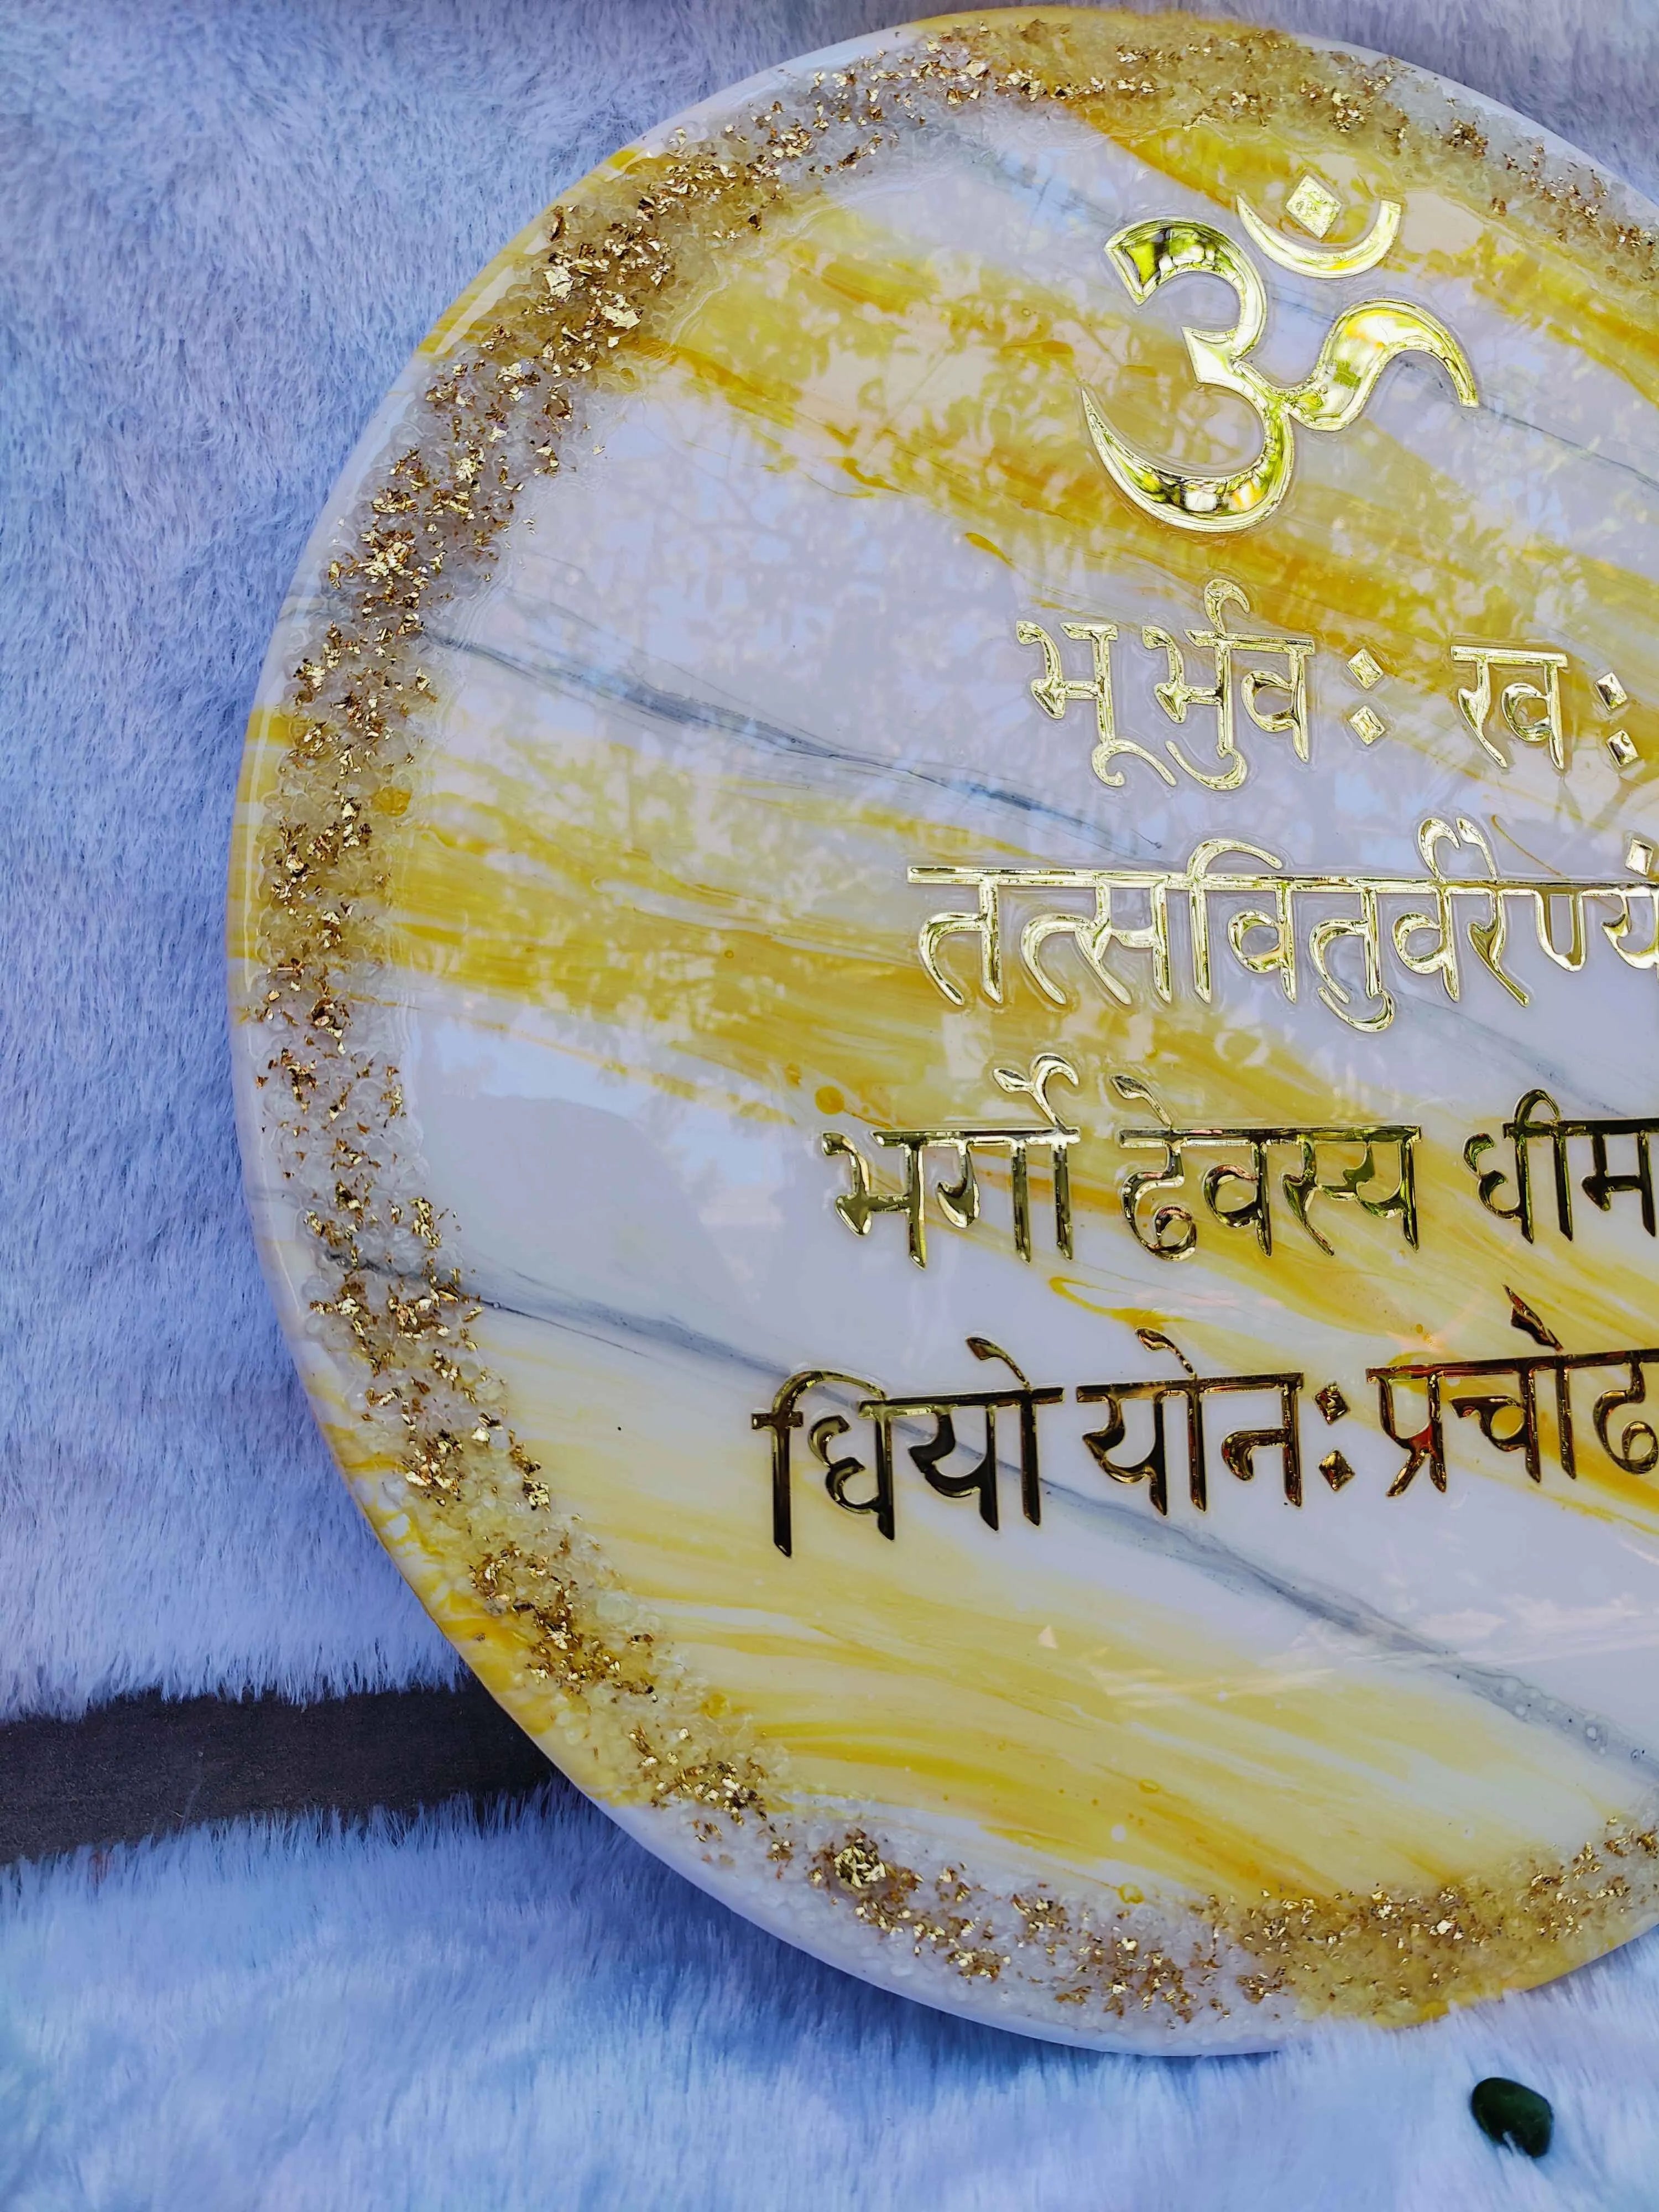 ॐ
भूर्भुवः स्वः
तत्सवितुर्वरेण्यं
भर्गो देवस्य धीम
धियो योनः प्रचोद